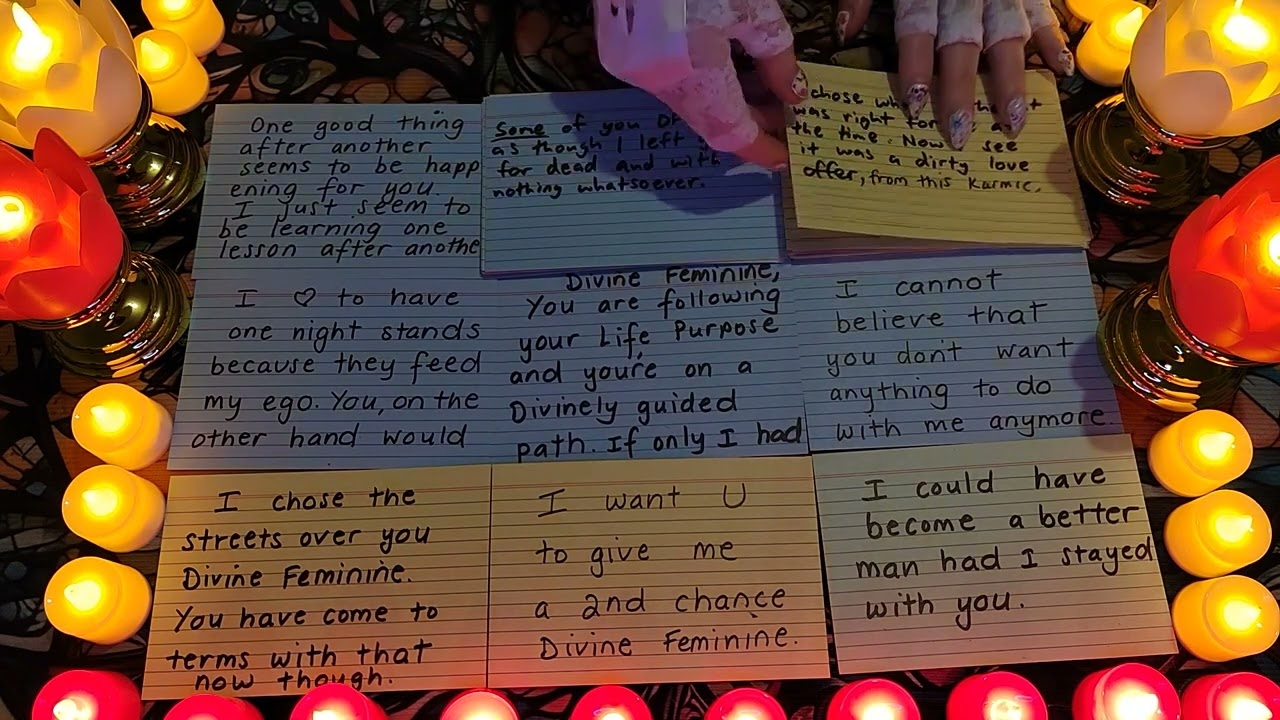 One good thing
after another
seems to be happ
ening for you.
I just seem to
be learning one
lesson after anothe
Some of you
as though I left
for dead and with
nothing whatsoever.
chose
was right for
the time. Now see
it was a dirty love
offer, from this Karmic.
I ♡ to have
one night stands
because they feed
my ego. You, on the
other hand would
Divine Feminine,
You are following
your Life Purpose
and you're on a
Divinely guided
path. If only I had
I cannot
believe that
you don't want
anything to do
with me anymore.
I chose the
streets over you
Divine Feminine.
You have come to
terms with that
now though.
I want U
to give me
a 2nd chance
Divine Feminine.
I could have
become a better
man had I stayed
with you.